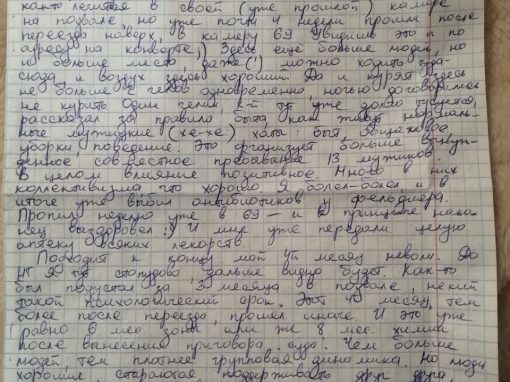 как-то лежится в своей (уже прошлой) камере
на подвале, но уже почти 4 недели прошли после
переезда наверх, в камеру 69 (увидишь это и по
адресу на конверте). Здесь еще больше людей, но
и больше места, даже (!) можно ходить туда-
сюда, и воздух здесь хороший. Да и курят здесь
не больше 2 чел. одновременно, ночью договорились
не курить. Один челик, к-й тут уже долго тусуется,
рассказал за правила быта, как живут нормаль-
ные мужицкие (хе-хе) хаты: быт, общаковое
уборки, поведение. Это организует больше вынуж-
денное совместное пребывание 13 мужиков.
В целом влияние позитивное. Много в них
коллективизма, что хорошо. Я болел-болел, и в
итоге уже выбил антибиотиков у фельдшера.
Пропил неделю уже в 69 – и в принципе нако-
нец выздоровел :) И мне уже передали целую
аптеку всяких лекарств.
Подходит к концу мой 4й месяц неволи. До
НГ я тут стопудово, дальше видно будет. Как-то
был подустал за 3 месяца в подвале, некий
такой психологический срок. Этот 4й месяц, тем
более после переезда, прошел иначе. И это уже
равно 6 мес. зоны или же 8 мес. химии
после вынесения приговора суда. Чем больше
людей, тем плотнее групповая динамика. Но люди
хорошие, стараются поддерживать друг друга